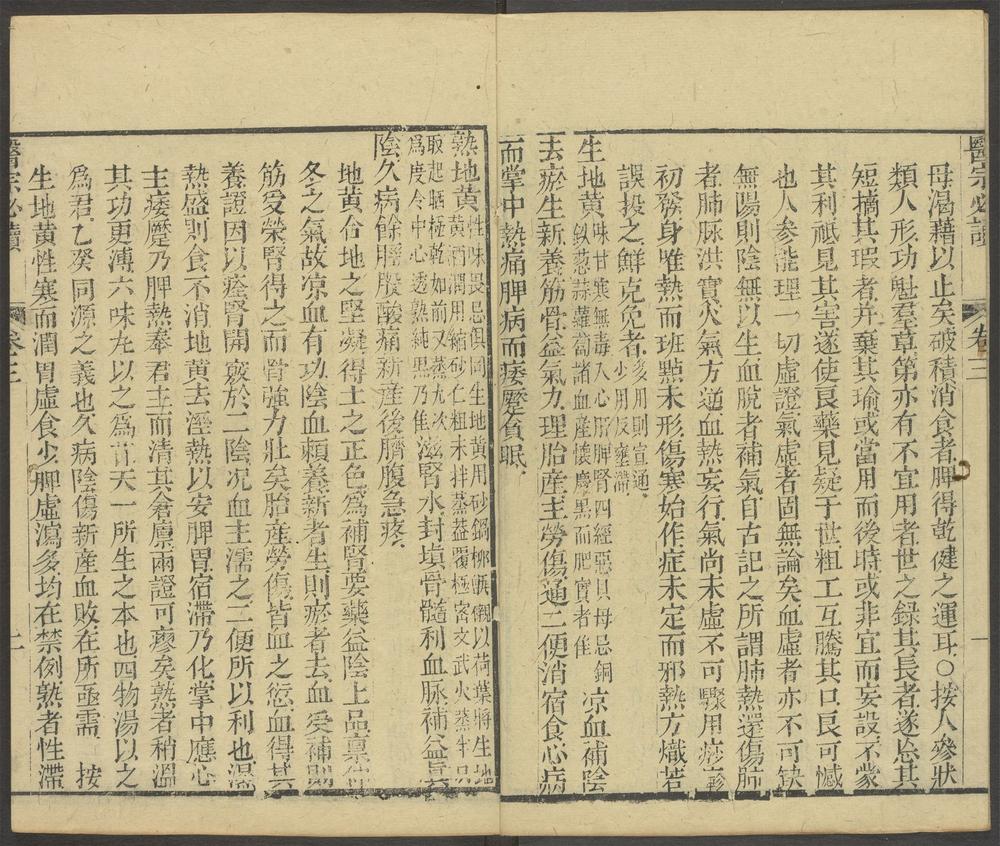 醫宗必讀 卷三 一
母渴藉以止矣破積消食者脾得乾健之運耳○按人參狀
類人形功魁羣草第亦有不宜用者世之録其長者遂忘其
短摘其瑕者并棄其瑜或當用而後時或非宜而妄設不蒙
其利祗見其害遂使良藥見疑于世粗工互騰其口良可憾
也人参能理一切虛證氣虛者固無論矣血虛者亦不可缺
無陽則陰無以生血脫者補氣自古記之所謂肺熱還傷肺
者肺脉洪實火氣方逆血熱妄行氣尚未虛不可驟用痧疹
初發身雖熱而班㸃未形傷寒始作症未定而邪熱方熾若
誤投之鮮克免者多用則宣通少用反壅滯
生地黄味甘寒無毒入心肝脾腎四經惡貝母忌銅鐵葱蒜蘿蔔諸血産懷慶黒而肥實者佳凉血補陰
去瘀生新養筋骨益氣力理胎産主勞傷通二便消宿食心病
而掌中熱痛脾病而痿躄貪眠
熟地黄性味畏忌俱同生地黄用砂鍋柳甑襯以荷葉將生地黄酒潤用縮砂仁粗末拌蒸蓋覆極密文武火蒸半日
取起晒極乾如前又蒸九次爲度令中心透熟純黒乃佳滋腎水封填骨髓利血脉補益真
陰久病餘脛股酸痛新産後臍腹急疼
地黄合地之堅凝得土之正色爲補腎要藥益陰上品禀仲
冬之氣故凉血有功陰血賴養新者生則瘀者去血受補則
筋受榮腎得之而骨強力壯矣胎産勞傷皆血之愆血得其
養證因以痊腎開竅於二陰况血主濡之二便所以利也濕
熱盛則食不消地黄去溼熱以安脾胃宿滯乃化掌中應心
主痿躄乃脾熱奉君主而清其倉廪兩證可廖矣熟者稍溫
其功更溥六味丸以之爲首天一所生之本也四物湯以之
爲君乙癸同源之義也久病陰傷新産血敗在所亟需 按
生地黄性寒而潤胃虛食少脾虛瀉多均在禁例熟者性滯
醫宗必讀 卷之三 二